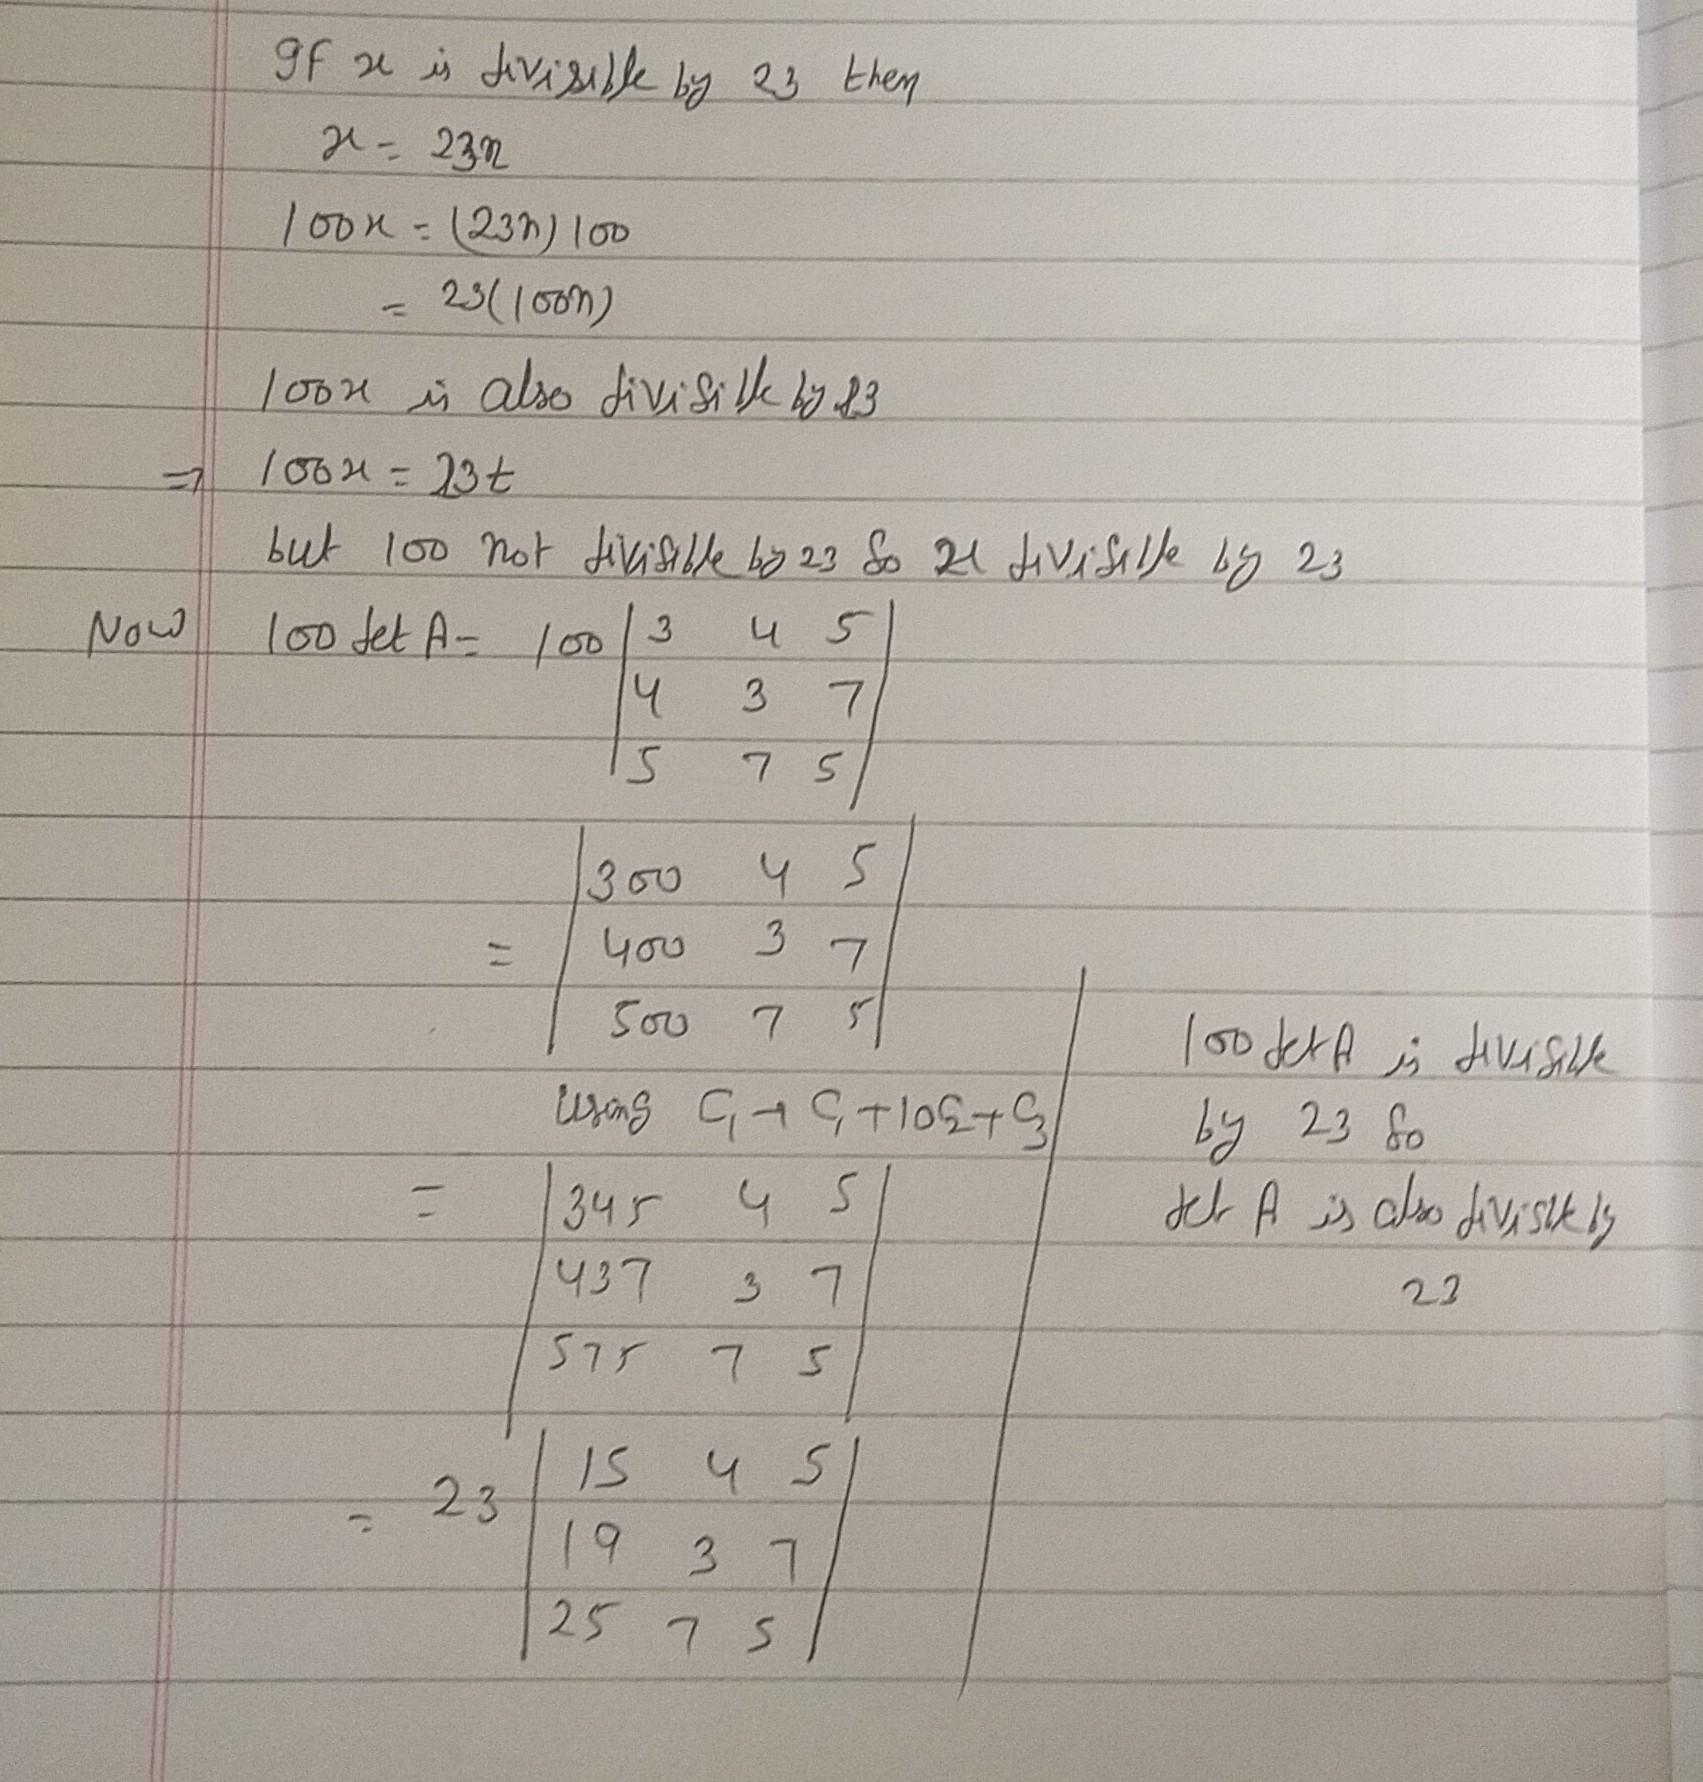 If x is divisible by 23 then
x = 23n
100x = (23n) 100
= 23(100n)
100x is also divisible by 23
⇒ 100x = 23t
but 100 not divisible by 23 so x divisible by 23
Now 100 det A = 100 | 3 4 5 |
| 4 3 7 |
| 5 7 5 |
| 300 4 5 |
= | 400 3 7 |
| 500 7 5 |
using C₁ → C₁ + 10C₂ + C₃
= | 345 4 5 |
| 437 3 7 |
| 575 7 5 |
= 23 | 15 4 5 |
| 19 3 7 |
| 25 7 5 |
100 det A is divisible
by 23 so
det A is also divisible by
23